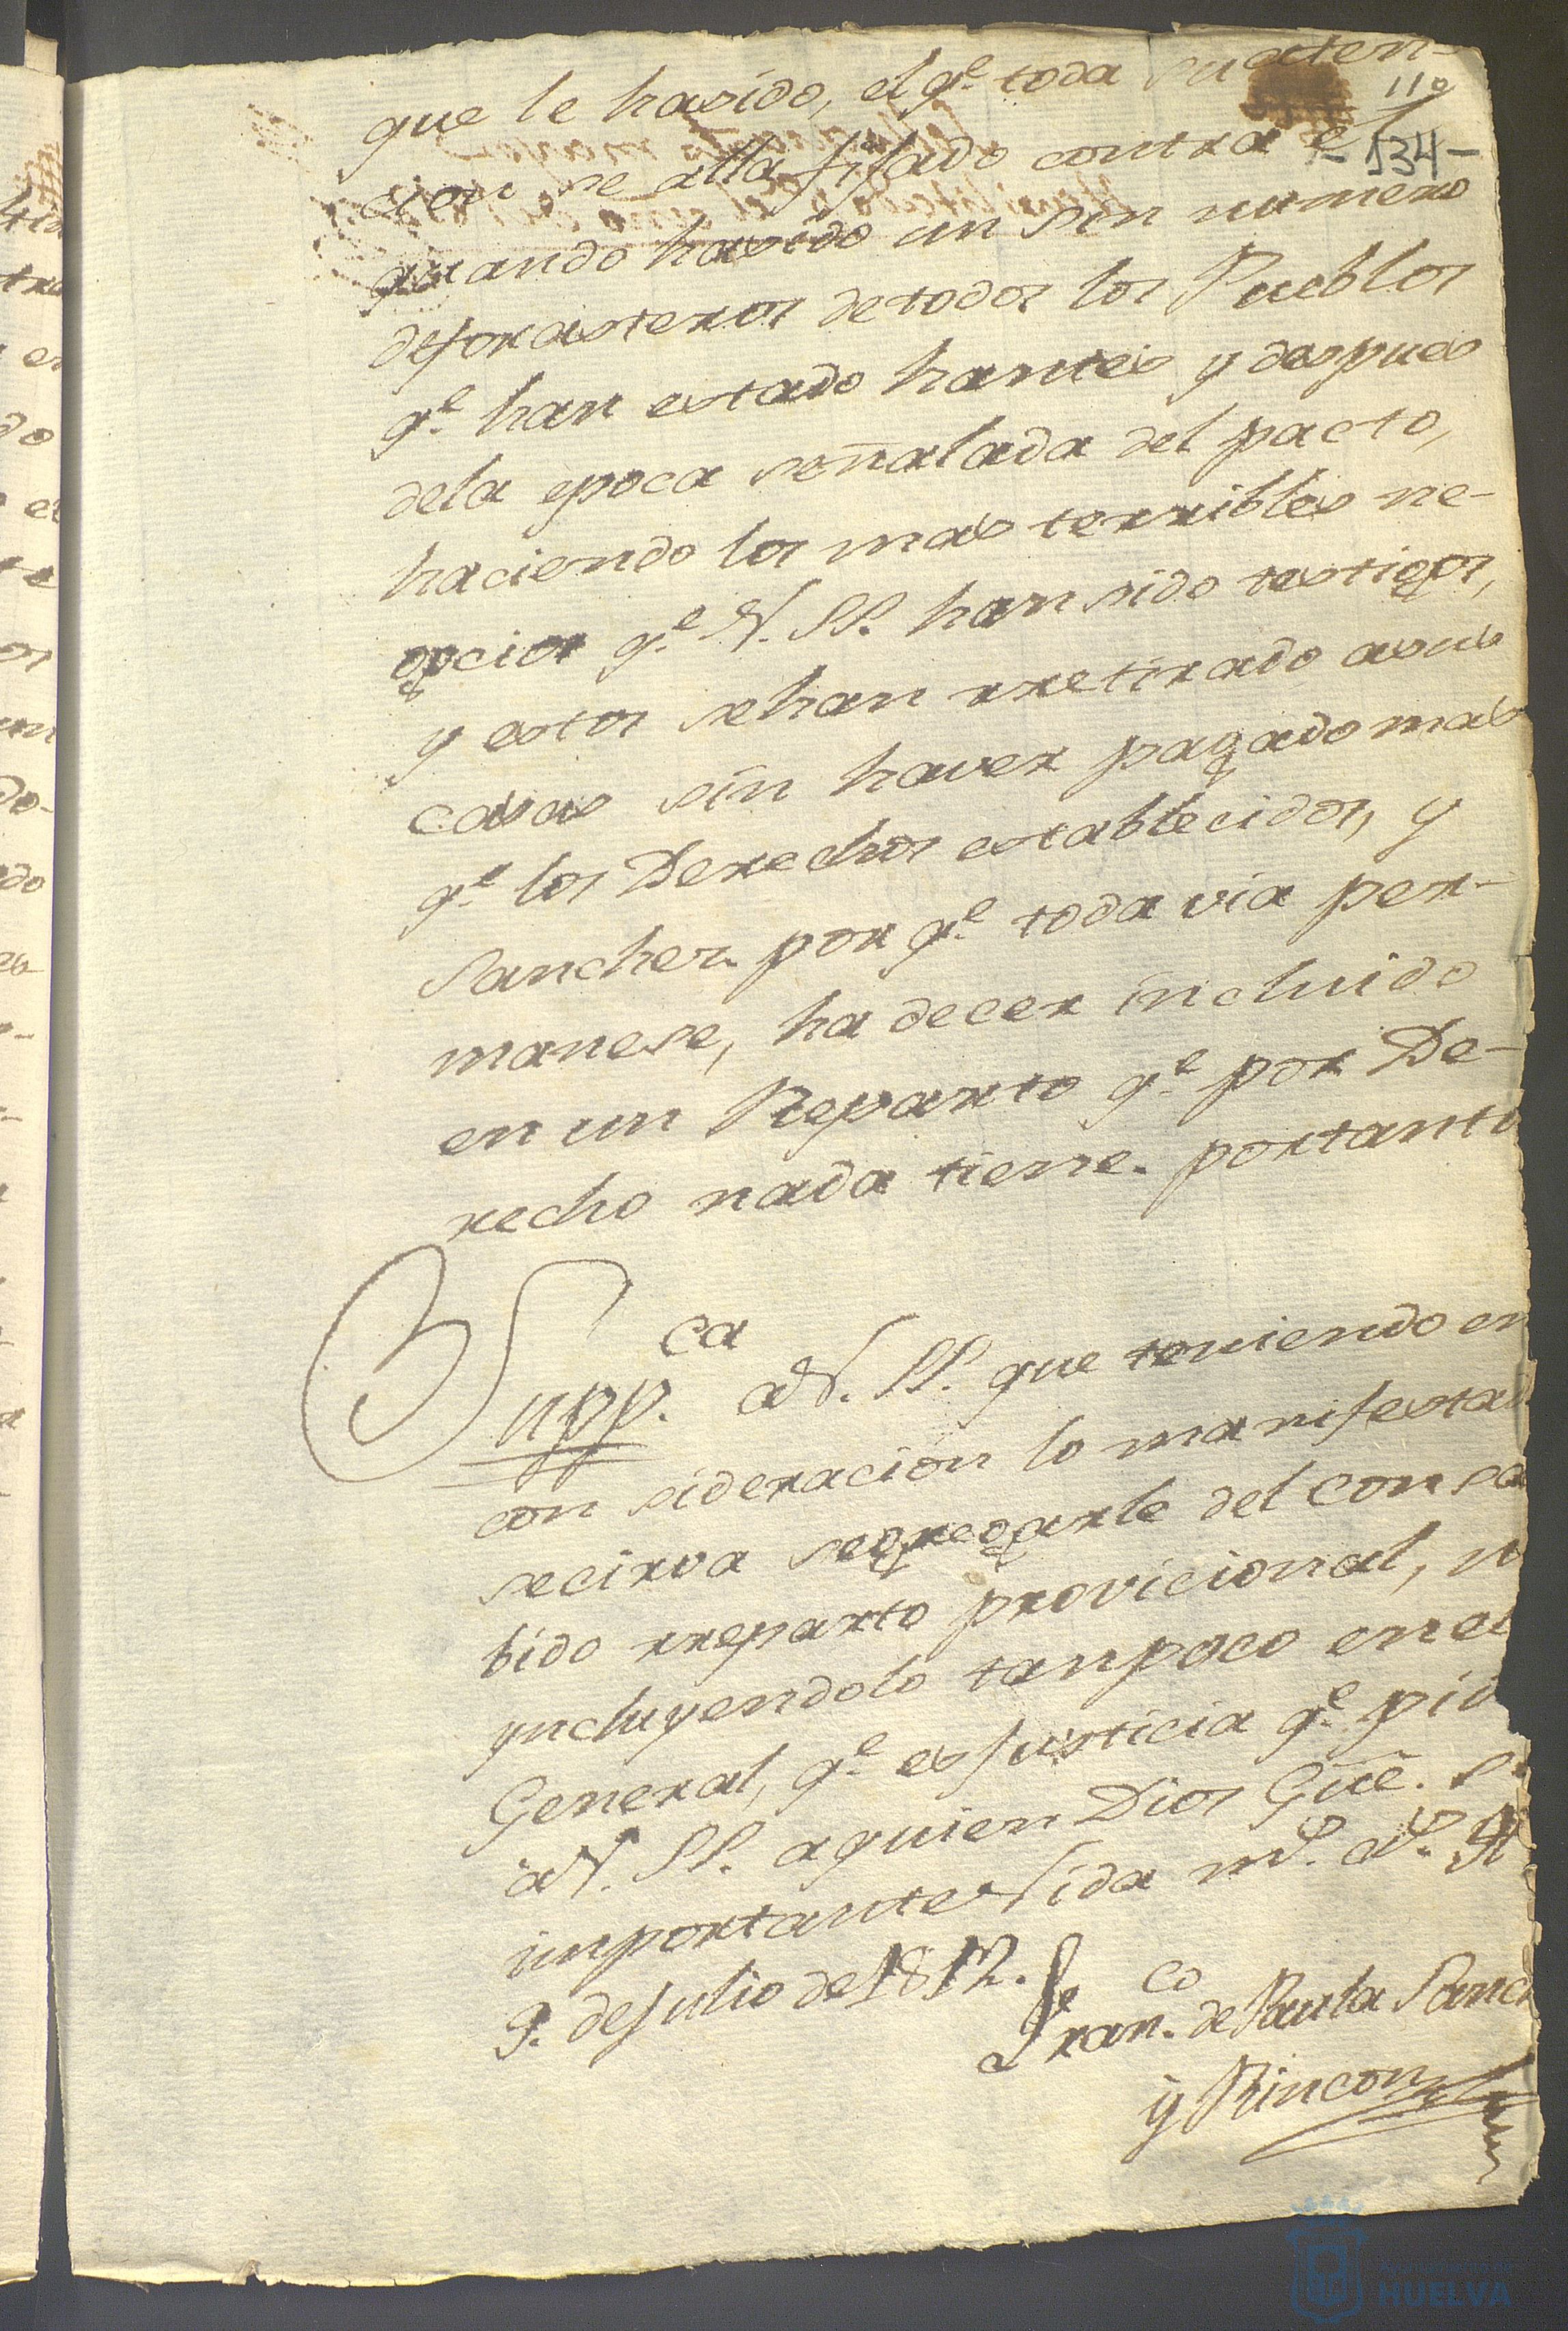 que le hasido, el q.e toda su aten-
110
-134-
cion se alla fijado contra el
quando havido un sin numero
deforasteros detodos los Pueblos
q.e han estado hantes y despues
dela epoca señalada del pacto,
haciendo los mas terribles ne-
gocios q.e V. SS. han sido testigos,
y estos sehan rretirado asus
casas sin haver pagado mas
q.e los Derechos establecidos, y
Sanchez por q.e toda via per-
manese, ha decer incluido
en un Reparto q.e por De-
recho nada tiene. portanto
Supp.ca aV. SS. que teniendo en
con sideración lo manifestad
secirva segregarle del consa
bido rreparto provicional, n
yncluyendolo tanpoco en el
General, q.e es Justicia q.e pid
aV. SS. aquien Dios Gũe. s.
importante Vida m.s a.s
9. de Julio de 1812.
Fran.co de Paula Sanch
y Rincon
HUELVA